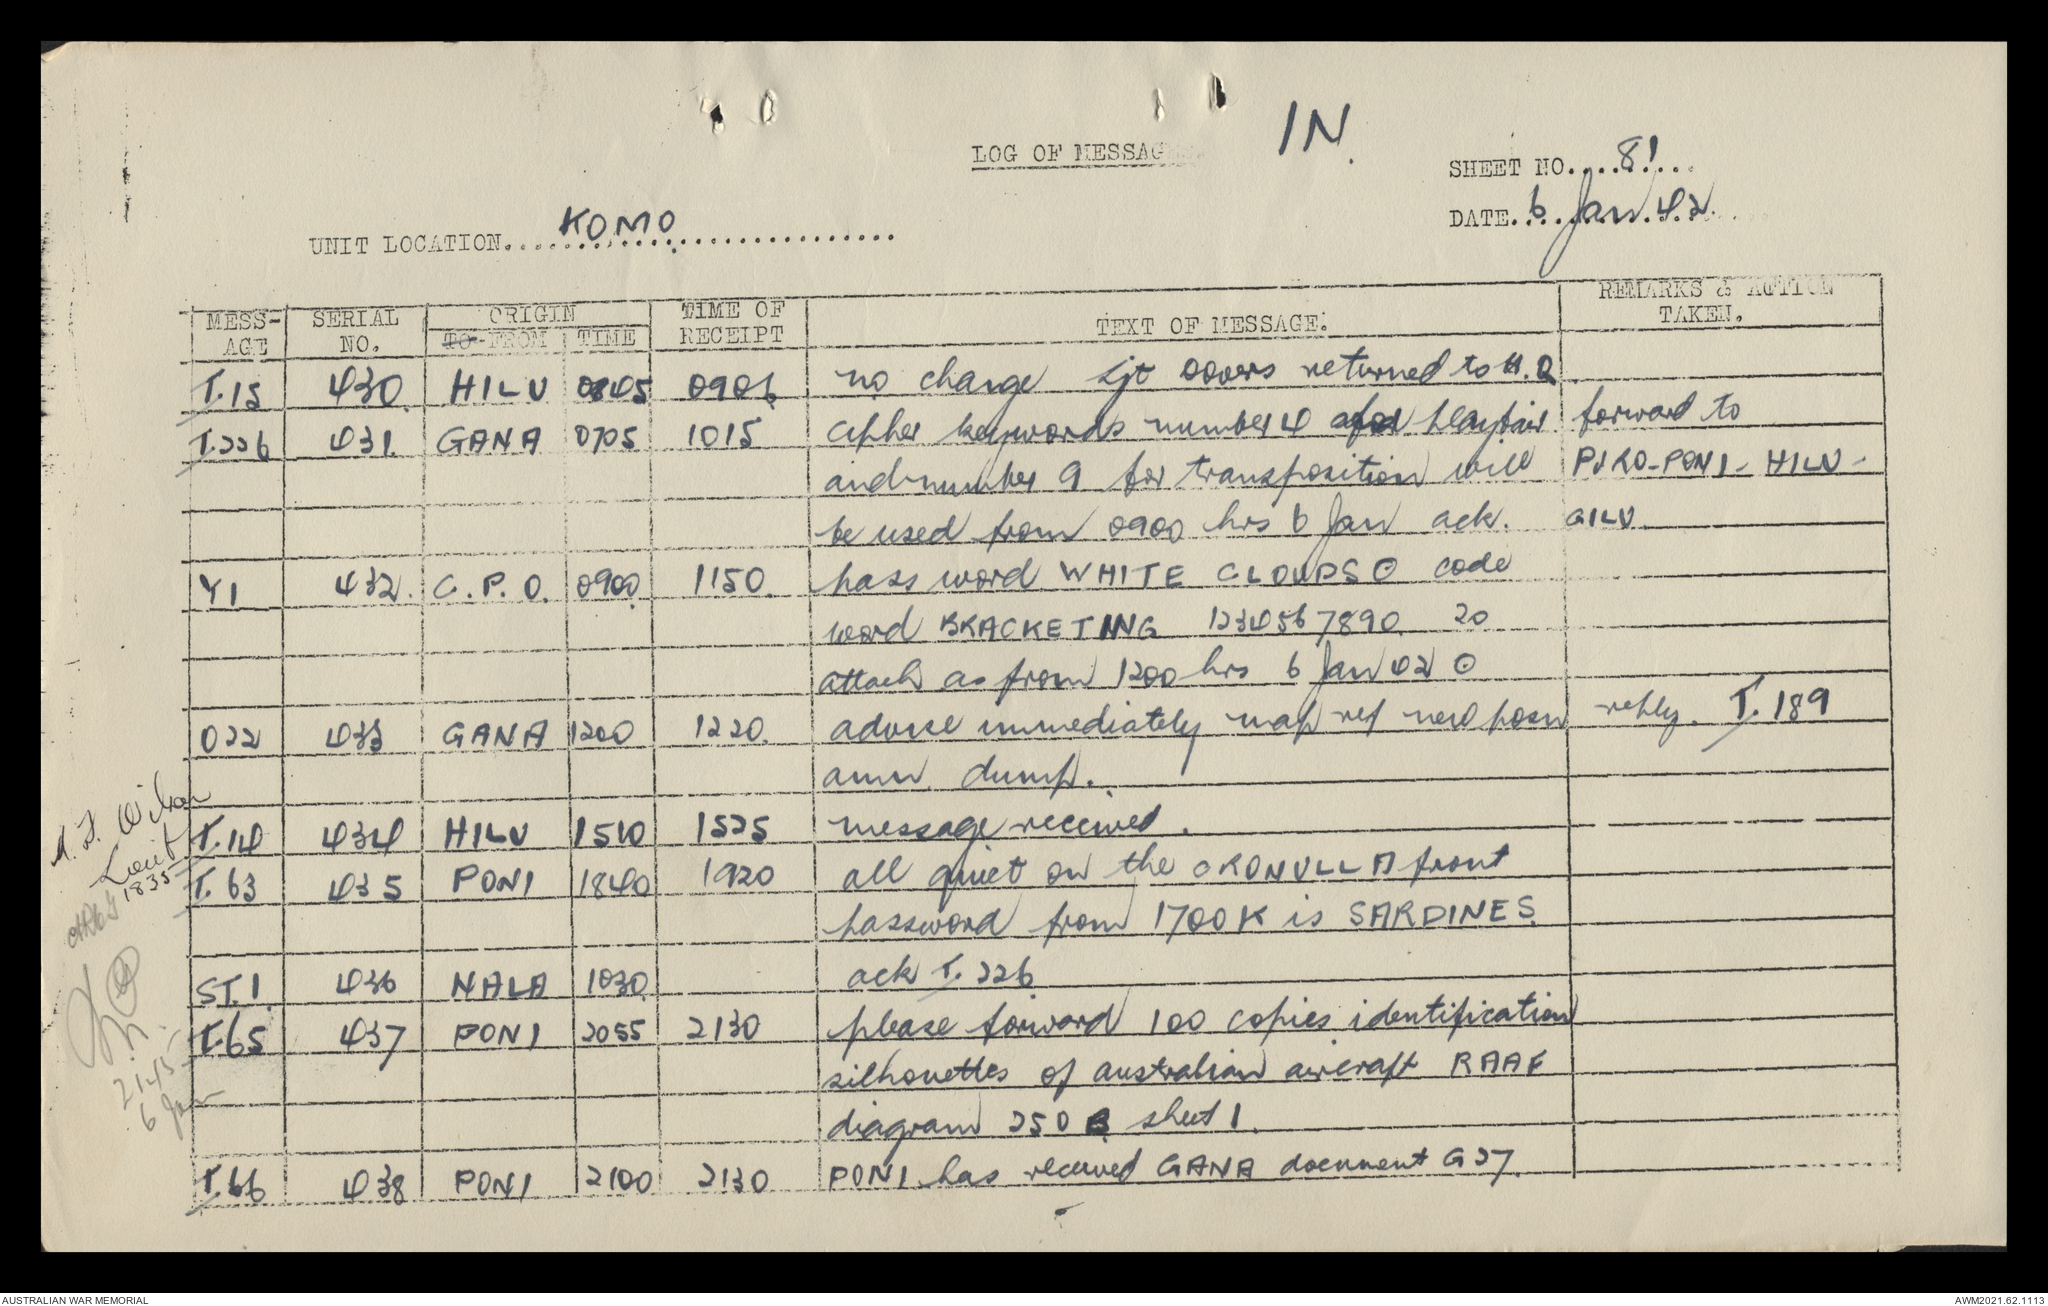 IN.
LOG OF MESSAGES.
SHEET NO....81....
DATE. 6 Jan 42.
UNIT LOCATION....KOMO....
MESS-AGE | SERIAL NO. | ORIGIN TO-FROM | TIME | TIME OF RECEIPT | TEXT OF MESSAGE. | REMARKS & ACTION TAKEN.
T.15 | 430. | HILU | 0845 | 0906 | no change Sjt covers returned to H.Q.
T.226 | 431. | GANA | 0705 | 1015 | cipher keywords number 4 for playfair | forward to
and number 9 for transposition will | PURO-PONI-HILU-
be used from 0900 hrs 6 Jan ack. | GILU.
Y1 | 432. | C.P.O. | 0900 | 1150. | pass word WHITE CLOUDS ⊙ code
word BRACKETING 1234567890 20
attach as from 1200 hrs 6 Jan 42 ⊙
O22 | 433 | GANA | 1200 | 1220. | advise immediately map ref new posn | reply. T.189
amn. dump.
T.14 | 434 | HILU | 1510 | 1525 | message received.
T.63 | 435 | PONI | 1840 | 1920 | all quiet on the CRONULLA front
password from 1700K is SARDINES.
ST.1. | 436 | NALA | 1030. | ack T.226
T.65 | 437 | PONI | 2055 | 2130 | please forward 100 copies identification
silhouettes of australian aircraft RAAF
diagram 250 B sheet 1.
T.66 | 438 | PONI | 2100 | 2130 | PONI has received GANA document G27.
Wilson
Lieut
1835
2145
6 Jan
AUSTRALIAN WAR MEMORIAL
AWM2021.62.1113